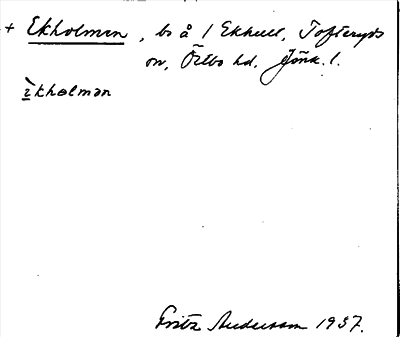 + Ekholmen, bs å 1 Ekhult, Tofteryds
sn, Östbo hd. Jönk. l.
ìkholmən
Fritz Andersson 1937.